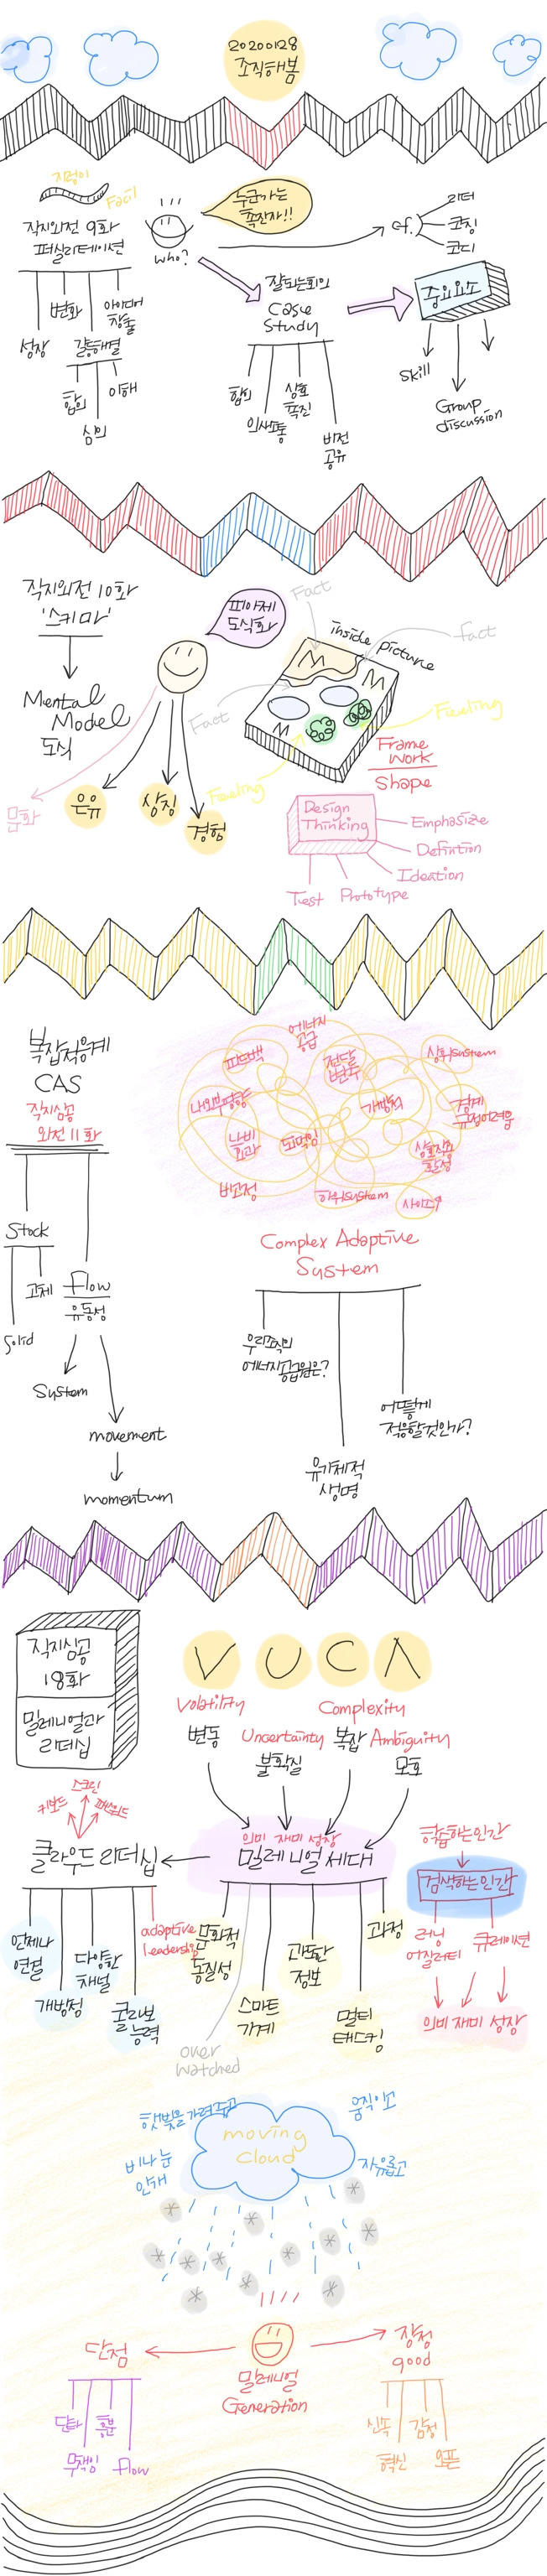 20200128
조직해봄
지렁이
Facil
직지외전 9화
퍼실리테이션
성장
변화
갈등해결
아이디어
창출
합의
심의
이해
who?
누군가는
촉진자!!
cf.
리더
코칭
코디
잘되는회의
Case
Study
합의
의사소통
상호
촉진
비전
공유
중요요소
Skill
Group
discussion
직지외전 10화
'스키마'
Mental
Model
도식
피아제
도식화
문화
은유
상징
경험
Fact
inside picture
fact
Fact
Feeling
Feeling
Frame
work
Shape
Design
Thinking
Emphasize
Definition
Ideation
Test
Prototype
복잡적응계
CAS
직지심공
외전 11화
Stock
고체
Solid
flow
유동성
System
movement
momentum
에너지
공급
피드백
전달
반복
상위system
내외부평형
개방적
경계
규정어려움
나비
효과
되먹임
상호작용
활성
비고정
하위system
Complex Adaptive
System
우리조직의
에너지공급원은?
유기체적
생명
어떻게
적응할것인가?
직지심공
18화
밀레니얼과
리더십
V U C A
Volatility
변동
Uncertainty
불확실
Complexity
복잡
Ambiguity
모호
키보드
스크린
패스워드
클라우드 리더십
언제나
연결
개방성
다양한
채널
콜라보
능력
adaptive
leadership
의미 재미 성장
밀레니얼 세대
문화적
동질성
over
watched
스마트
기계
과도한
정보
멀티
태스킹
과정
학습하는인간
검색하는인간
러닝
어질리티
큐레이션
의미 재미 성장
moving
cloud
햇빛을가려주고
비나 눈
안개
움직이고
자유롭고
밀레니얼
Generation
단점
단타
무책임
흥분
flow
장점
good
신속
혁신
감정
오픈